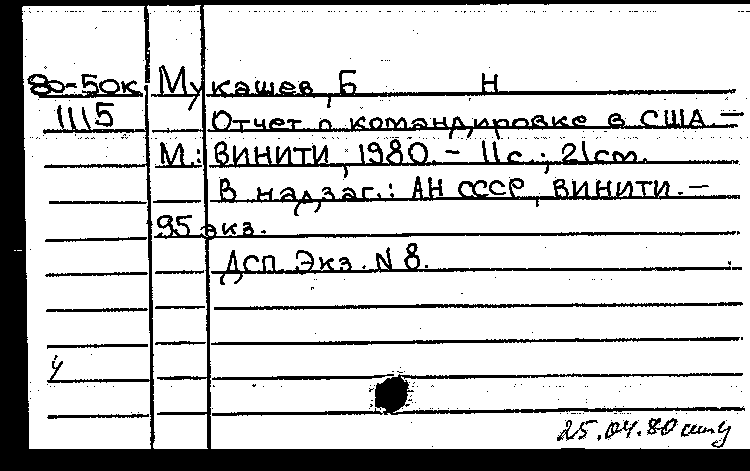 80-50к Мукашев, Б Н
1115 Отчет о командировке в США. —
М.: ВИНИТИ, 1980. - 11с.; 21см.
В надзаг.: АН СССР, ВИНИТИ. —
95 экз.
ДСП Экз. N 8.
у
25.04.80